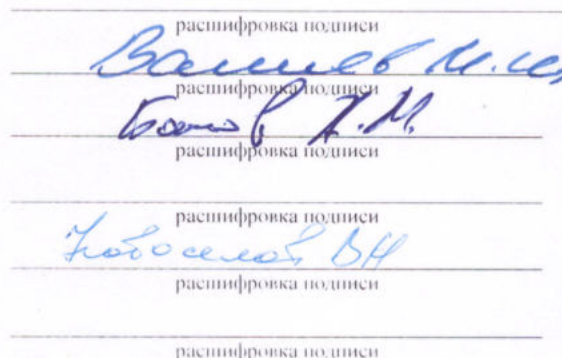 расшифровка подписи
Валиев М.
расшифровка подписи
Х.М.
расшифровка подписи
расшифровка подписи
Новоселов ВН
расшифровка подписи
расшифровка подписи